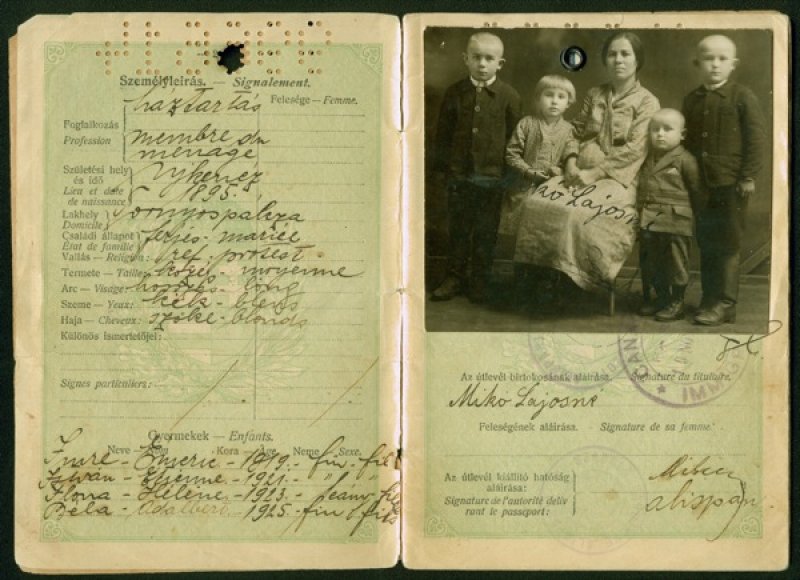 Személyleírás. — Signalement.
háztartás Felesége — Femme.
Foglalkozás
Profession
membre du
ménage
Születési hely
és idő
Lieu et date
de naissance
1895.
Lakhely
Domicile
Tornyospálca
Családi állapot
État de famille
férjes - mariée
Vallás — Religion: ref. protest.
Termete — Taille: közép - moyenne
Arc — Visage: hosszas - long
Szeme — Yeux: kék - bleus
Haja — Cheveux: szőke - blonds
Különös ismertetőjel:
Signes particuliers:
Gyermekek — Enfants.
Neve — Nom Kora — Age Neme — Sexe.
Imre - Emeric - 1919 - fiu - fils
István - Etienne - 1921 - " "
Ilona - Hélène - 1923 - leány - fille
Béla - Adalbert - 1925 - fiu fils
Mikó Lajosné
CANA
IMMIG
Az útlevél birtokosának aláírása. Signature du titulaire.
Mikó Lajosné
Feleségének aláírása. Signature de sa femme.
Az útlevél kiállító hatóság
aláírása:
Signature de l'autorité déliv
rant le passeport:
alispán